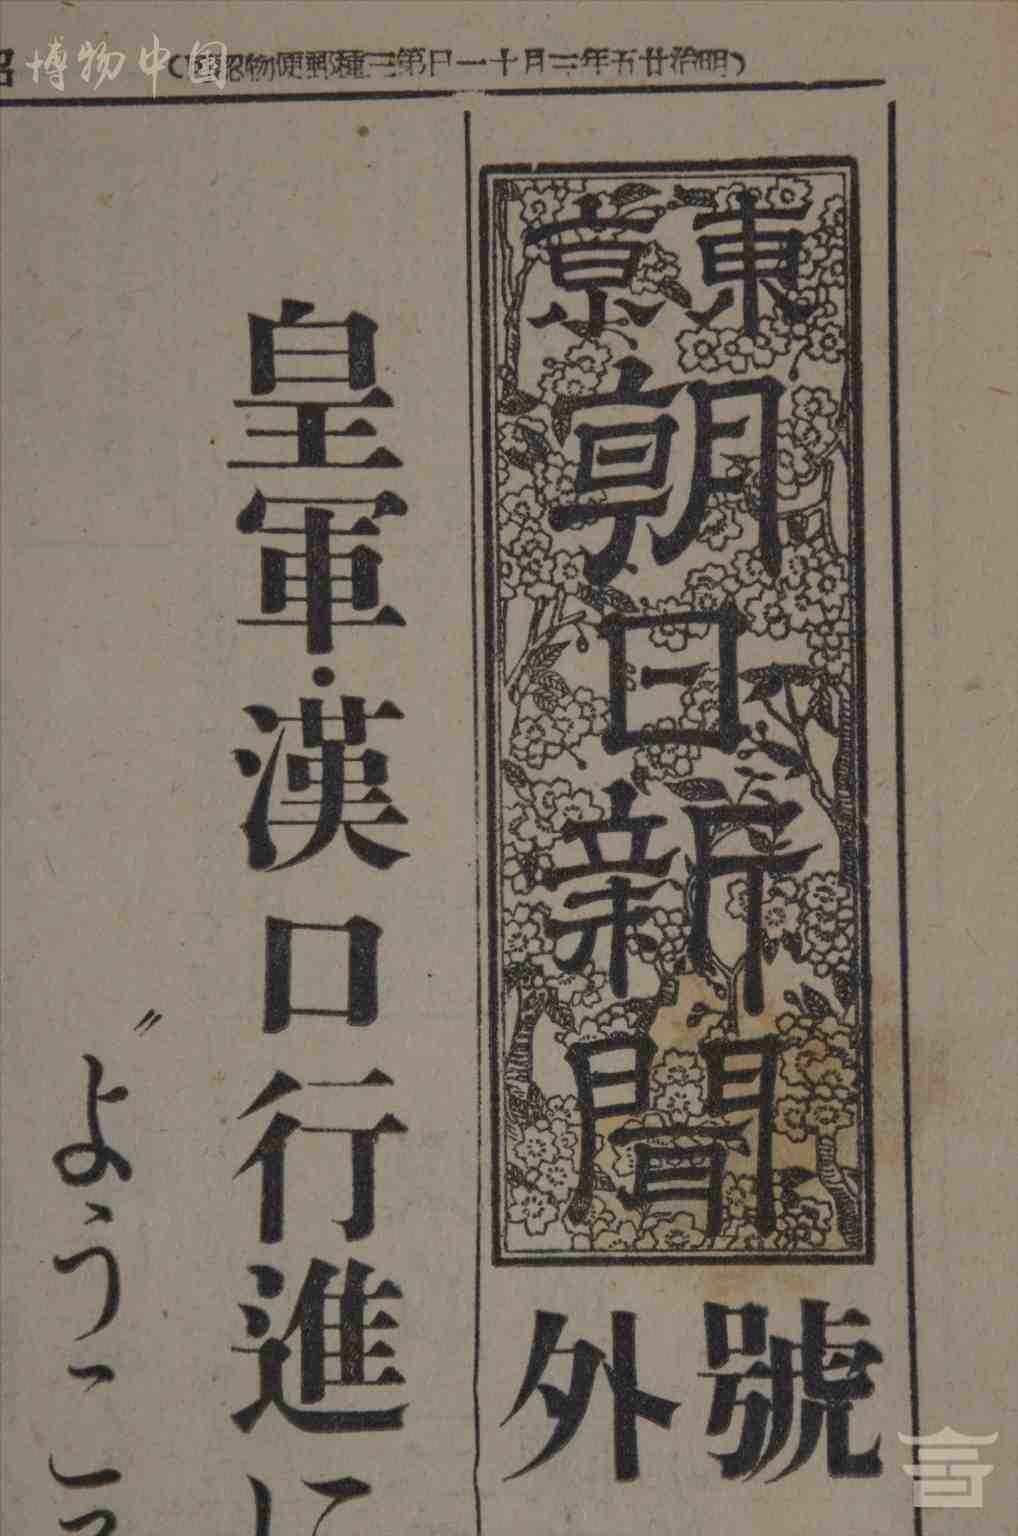 (明治廿五年三月十一日第三種郵便物認
東京
朝日新聞
號外
皇軍・漢口行進に
〝ようこ
博物中国